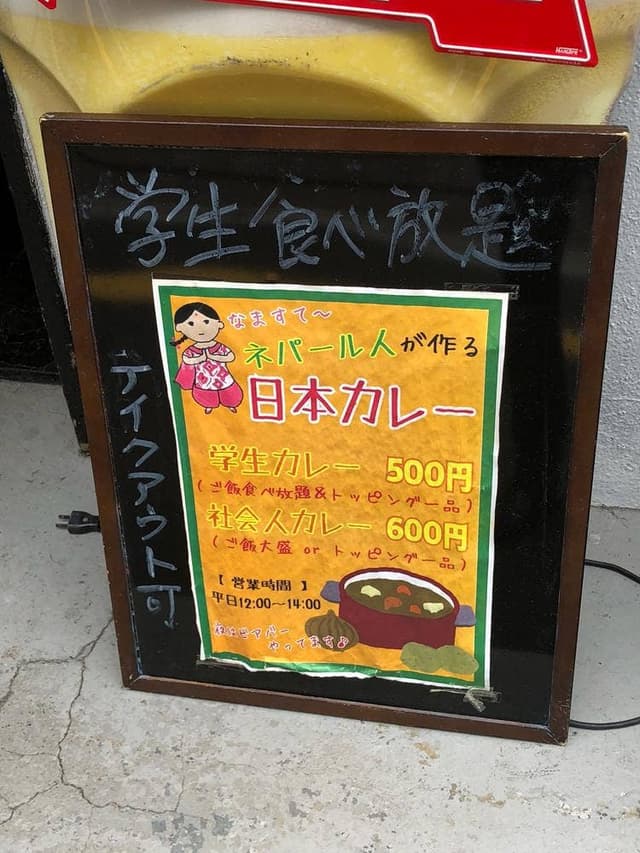 学生食べ放題
テイクアウト可
なますて～
ネパール人が作る
日本カレー
学生カレー 500円
(ご飯食べ放題&トッピング一品)
社会人カレー 600円
(ご飯大盛 or トッピング一品)
【 営業時間 】
平日12:00～14:00
夜はビアバー
やってます♪